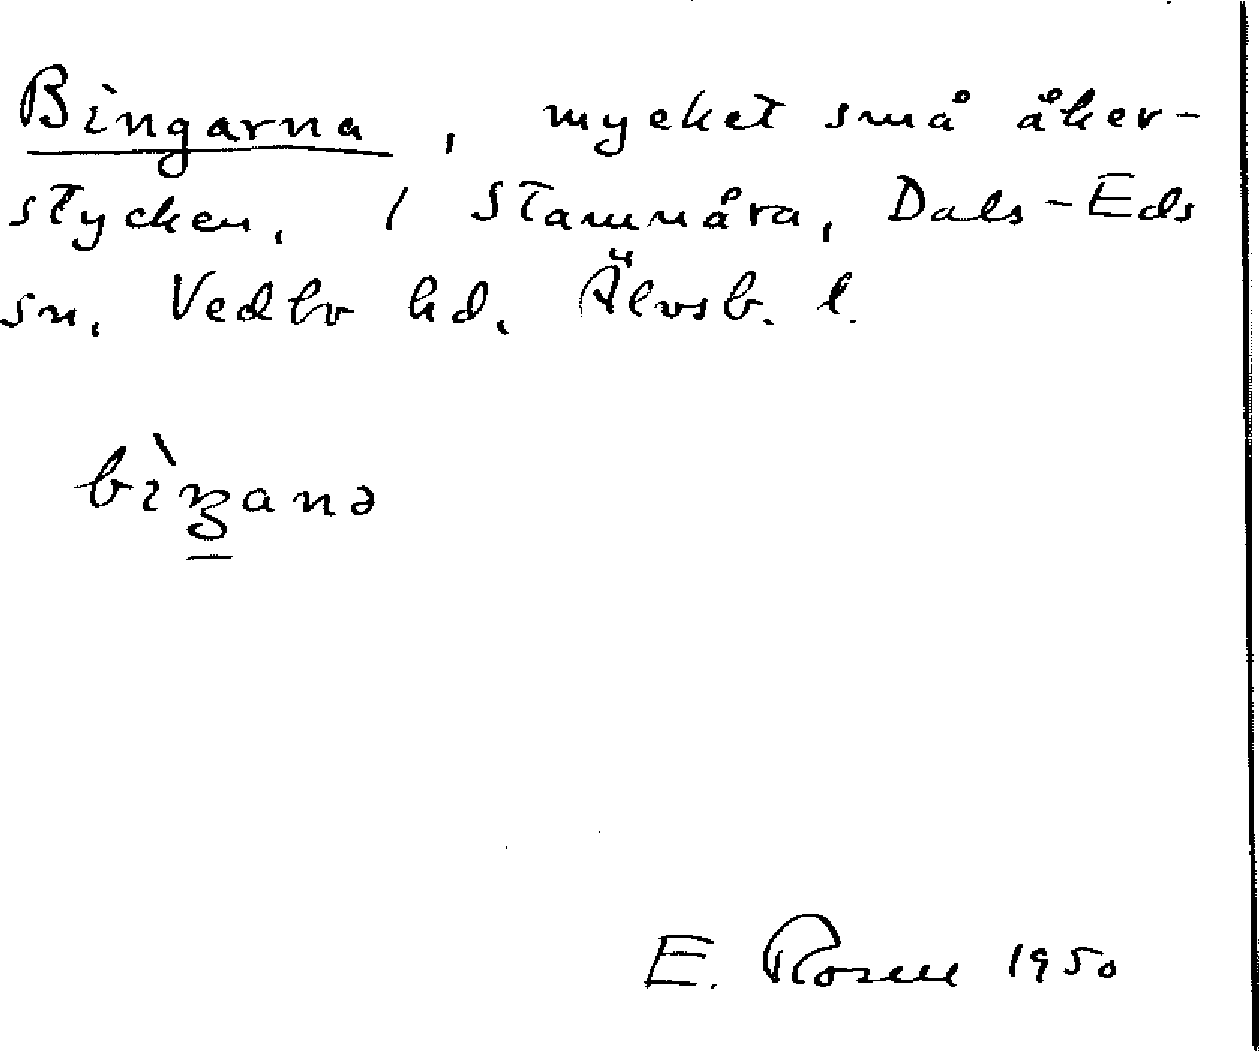 Bingarna, mycket små åker-
stycken, / Stamnåra, Dals-Eds
sn. Vedbo hd. Älvsb. l.
bìŋanə
E. Rosell 1950